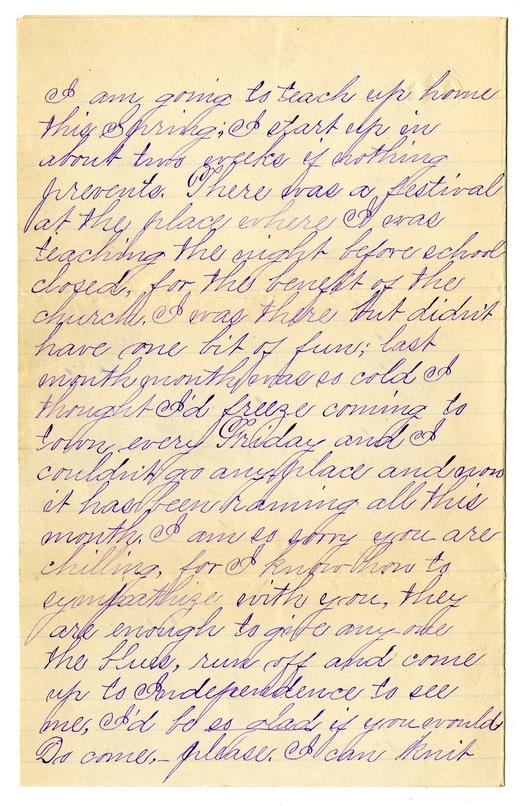 I am going to teach up home
this Spring; I start up in
about two weeks if nothing
prevents. There was a festival
at the place where I was
teaching the night before school
closed, for the benefit of the
church. I was there but didn't
have one bit of fun; last
month month was so cold I
thought I'd freeze coming to
town every Friday and I
couldn't go any place and now
it has been raining all this
month. I am so sorry you are
chilling, for I know how to
sympathize with you, they
are enough to give any one
the blues, run off and come
up to Independence to see
me, I'd be so glad if you would
Do come,- please. I can knit